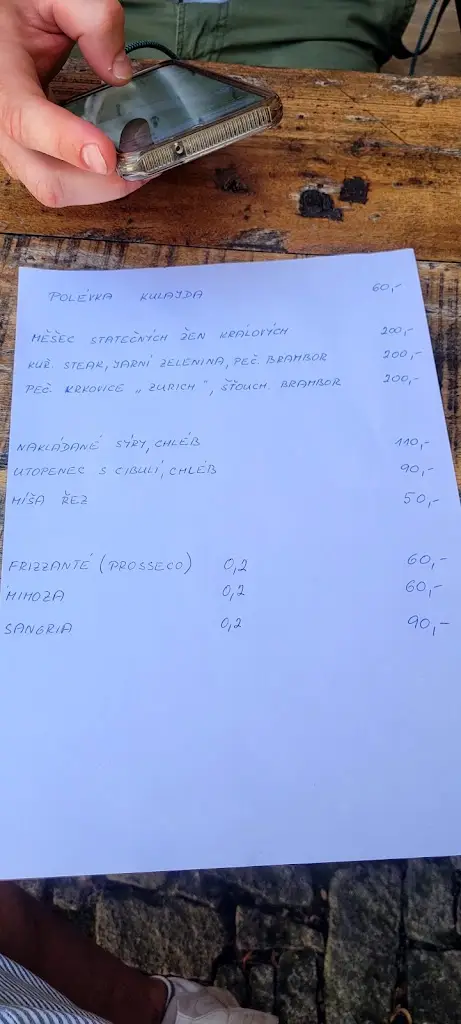 POLÉVKA KULAJDA 60,-
MĚŠEC STATEČNÝCH ŽEN KRÁLOVÝCH 200,-
KUŘ. STEAK, JARNÍ ZELENINA, PEČ. BRAMBOR 200,-
PEČ. KRKOVICE „ZURICH", ŠŤOUCH. BRAMBOR 200,-
NAKLÁDANÉ SÝRY, CHLÉB 110,-
UTOPENEC S CIBULÍ, CHLÉB 90,-
MÍŠA ŘEZ 50,-
FRIZZANTÉ (PROSSECO) 0,2 60,-
MIMOZA 0,2 60,-
SANGRIA 0,2 90,-